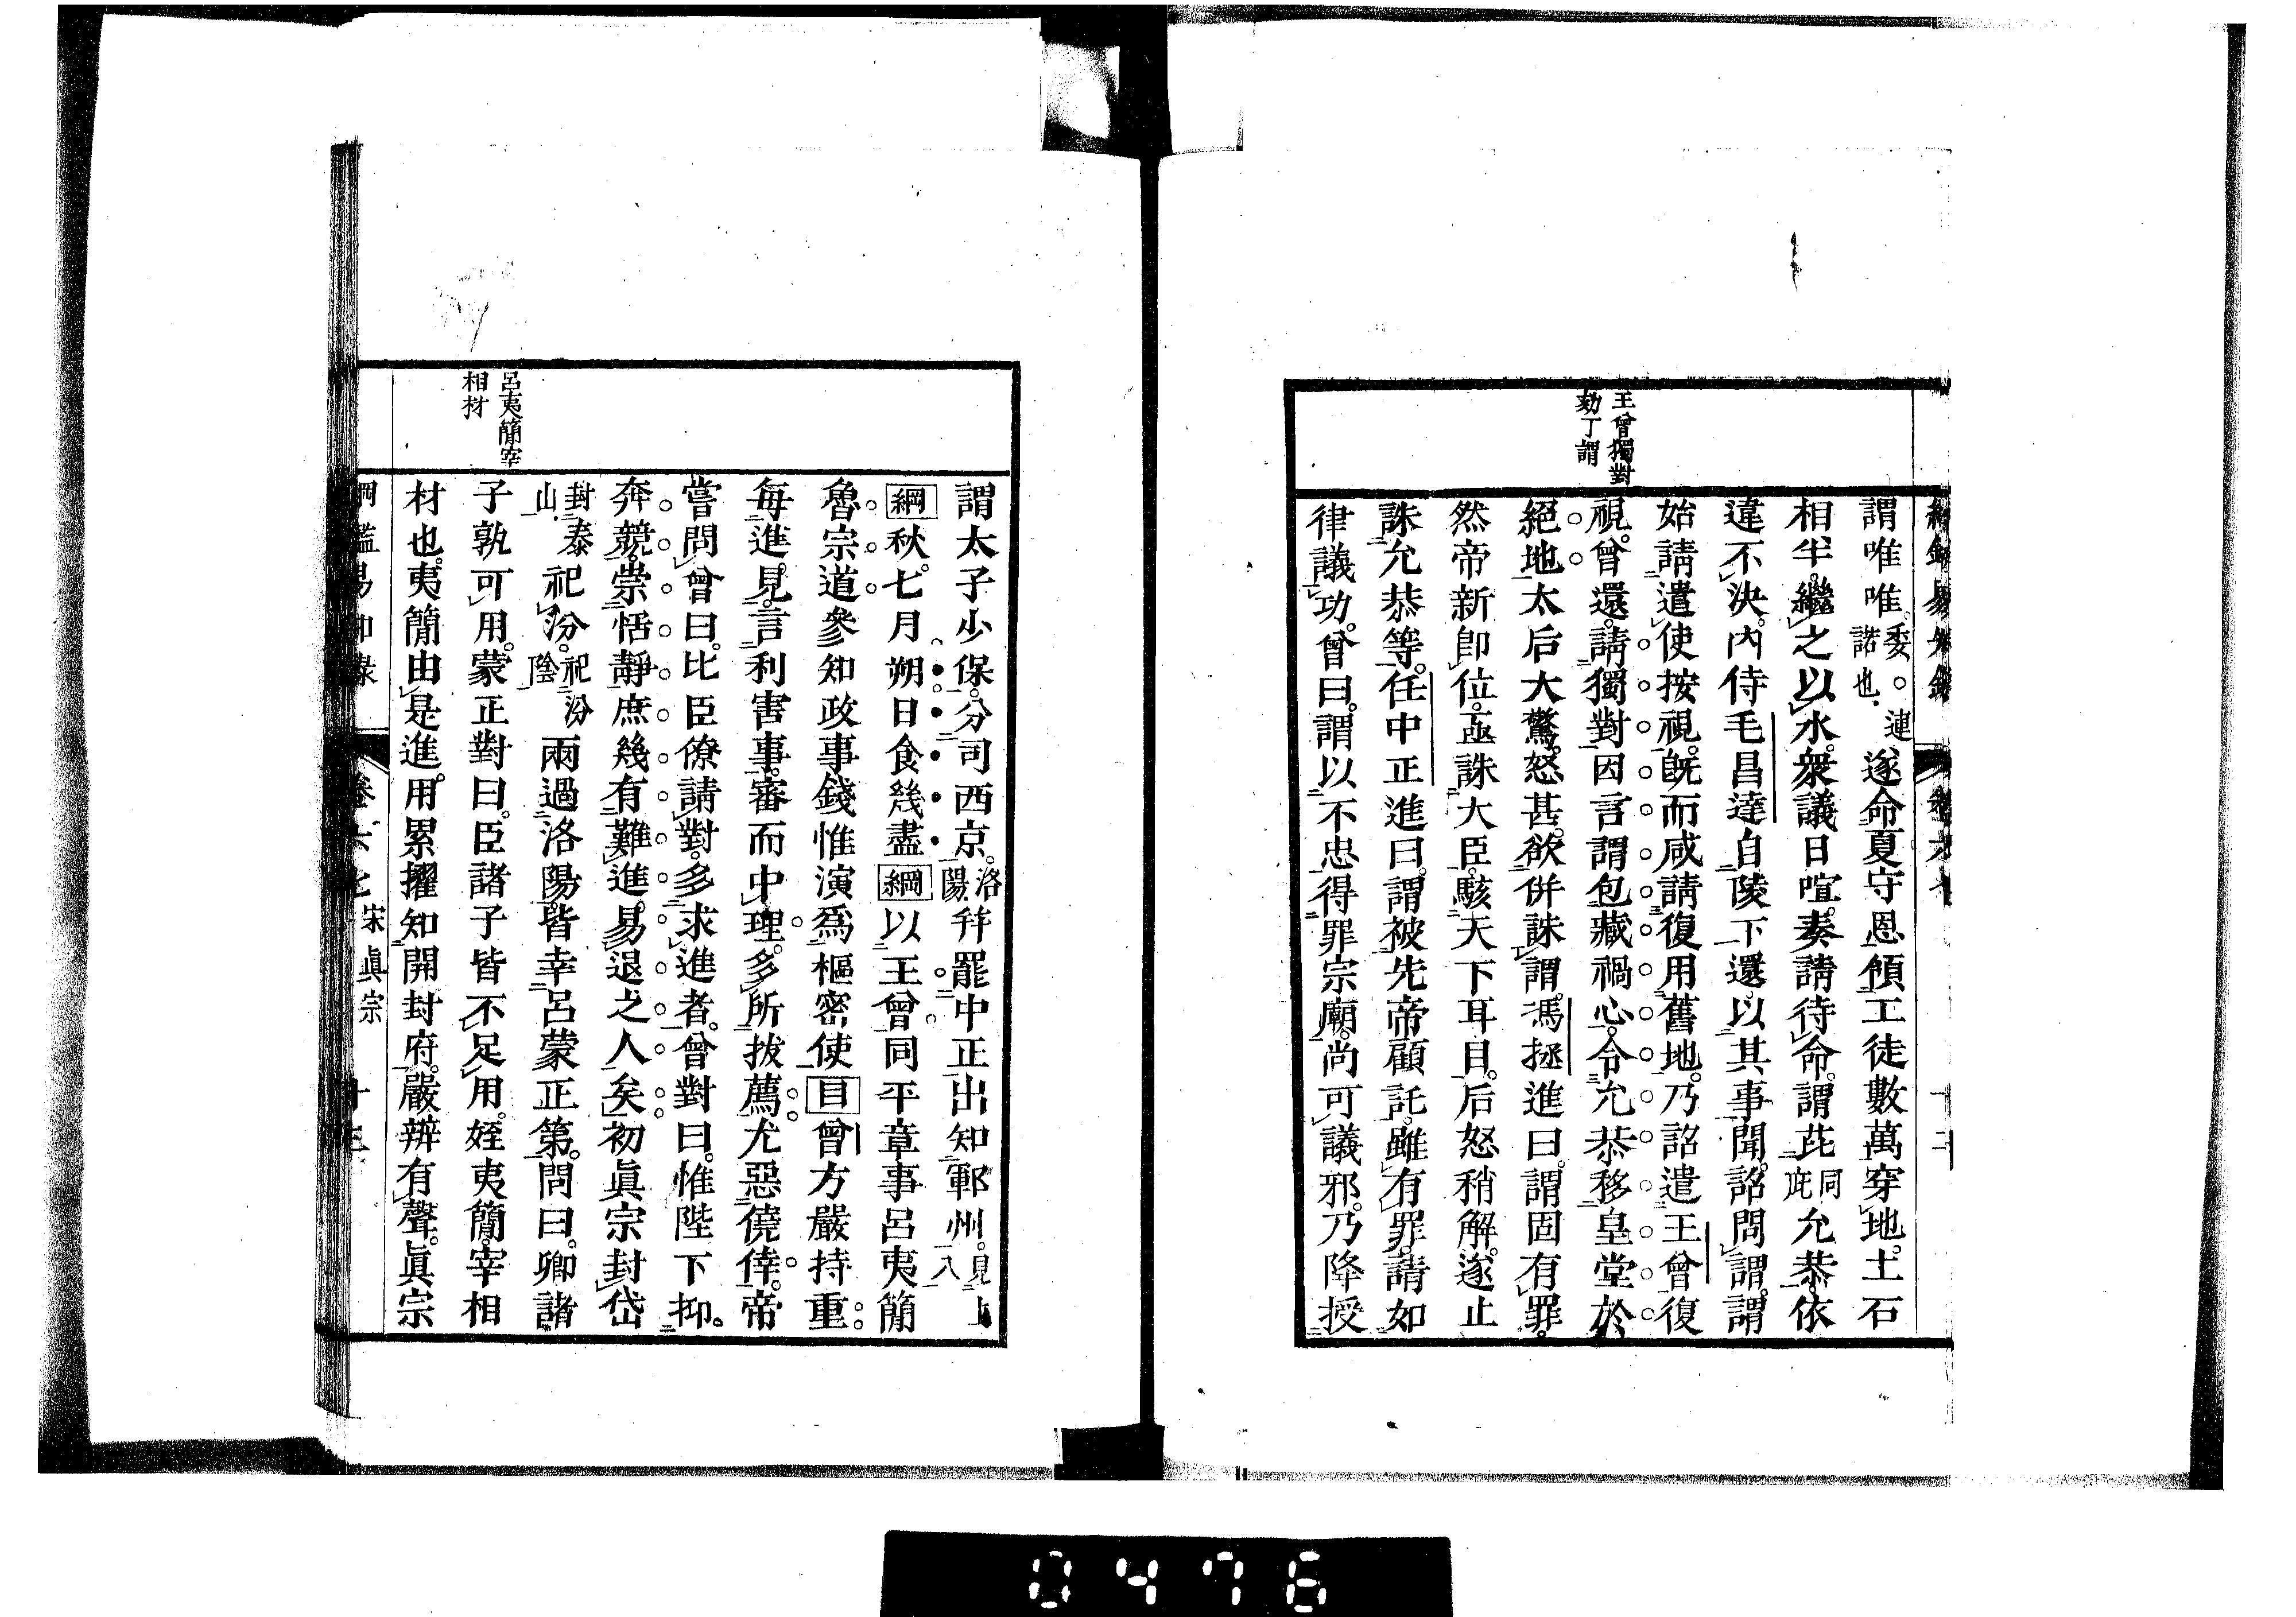 王曾獨對
劾丁謂
謂唯唯。委。連諾也。遂命夏守恩領工徒數萬穿地。土石
相半。繼之以水。衆議日喧。奏請待命。謂芘同庇允恭。依
違不決。內侍毛昌達自陵下還。以其事聞。詔問謂。謂
始請遣使按視。旣而咸請復用舊地。乃詔遣王曾復
視。曾還。請獨對。因言謂包藏禍心。令允恭移皇堂於
絕地。太后大驚。怒甚。欲併誅謂。馮拯進曰。謂固有罪。
然帝新卽位。亟誅大臣。駭天下耳目。后怒稍解。遂止
誅允恭等。任中正進曰。謂被先帝顧託。雖有罪。請如
律議功。曾曰。謂以不忠得罪宗廟。尚可議邪。乃降授
謂太子少保。分司西京。洛陽幷罷中正出知鄆州。見上八
綱秋。七月朔日食幾盡綱以王曾同平章事呂夷簡
魯宗道參知政事錢惟演爲樞密使目曾方嚴持重
每進見。言利害事。審而中理。多所拔薦。尤惡僥倖。帝
嘗問曾曰。比臣僚請對。多求進者。曾對曰。惟陛下抑
奔競。崇恬靜。庶幾有難進易退之人矣。初眞宗封岱
封泰山祀汾。祀汾陰兩過洛陽。皆幸呂蒙正第。問曰。卿諸
子孰可用。蒙正對曰。臣諸子皆不足用。姪夷簡。宰相
材也。夷簡由是進用。累擢知開封府。嚴辨有聲。眞宗
呂夷簡宰
相材
綱鑑易知錄 卷六七 宋眞宗 十三